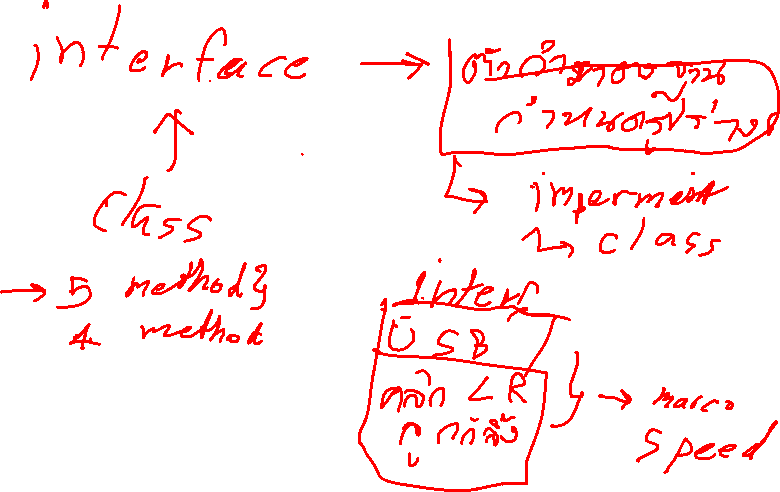 interface →
กำหนดรูปร่าง
imperment
class
class
→ 5 method
4 method
Interf
USB
คลิก L R
ลูกกลิ้ง
→ marco
speed